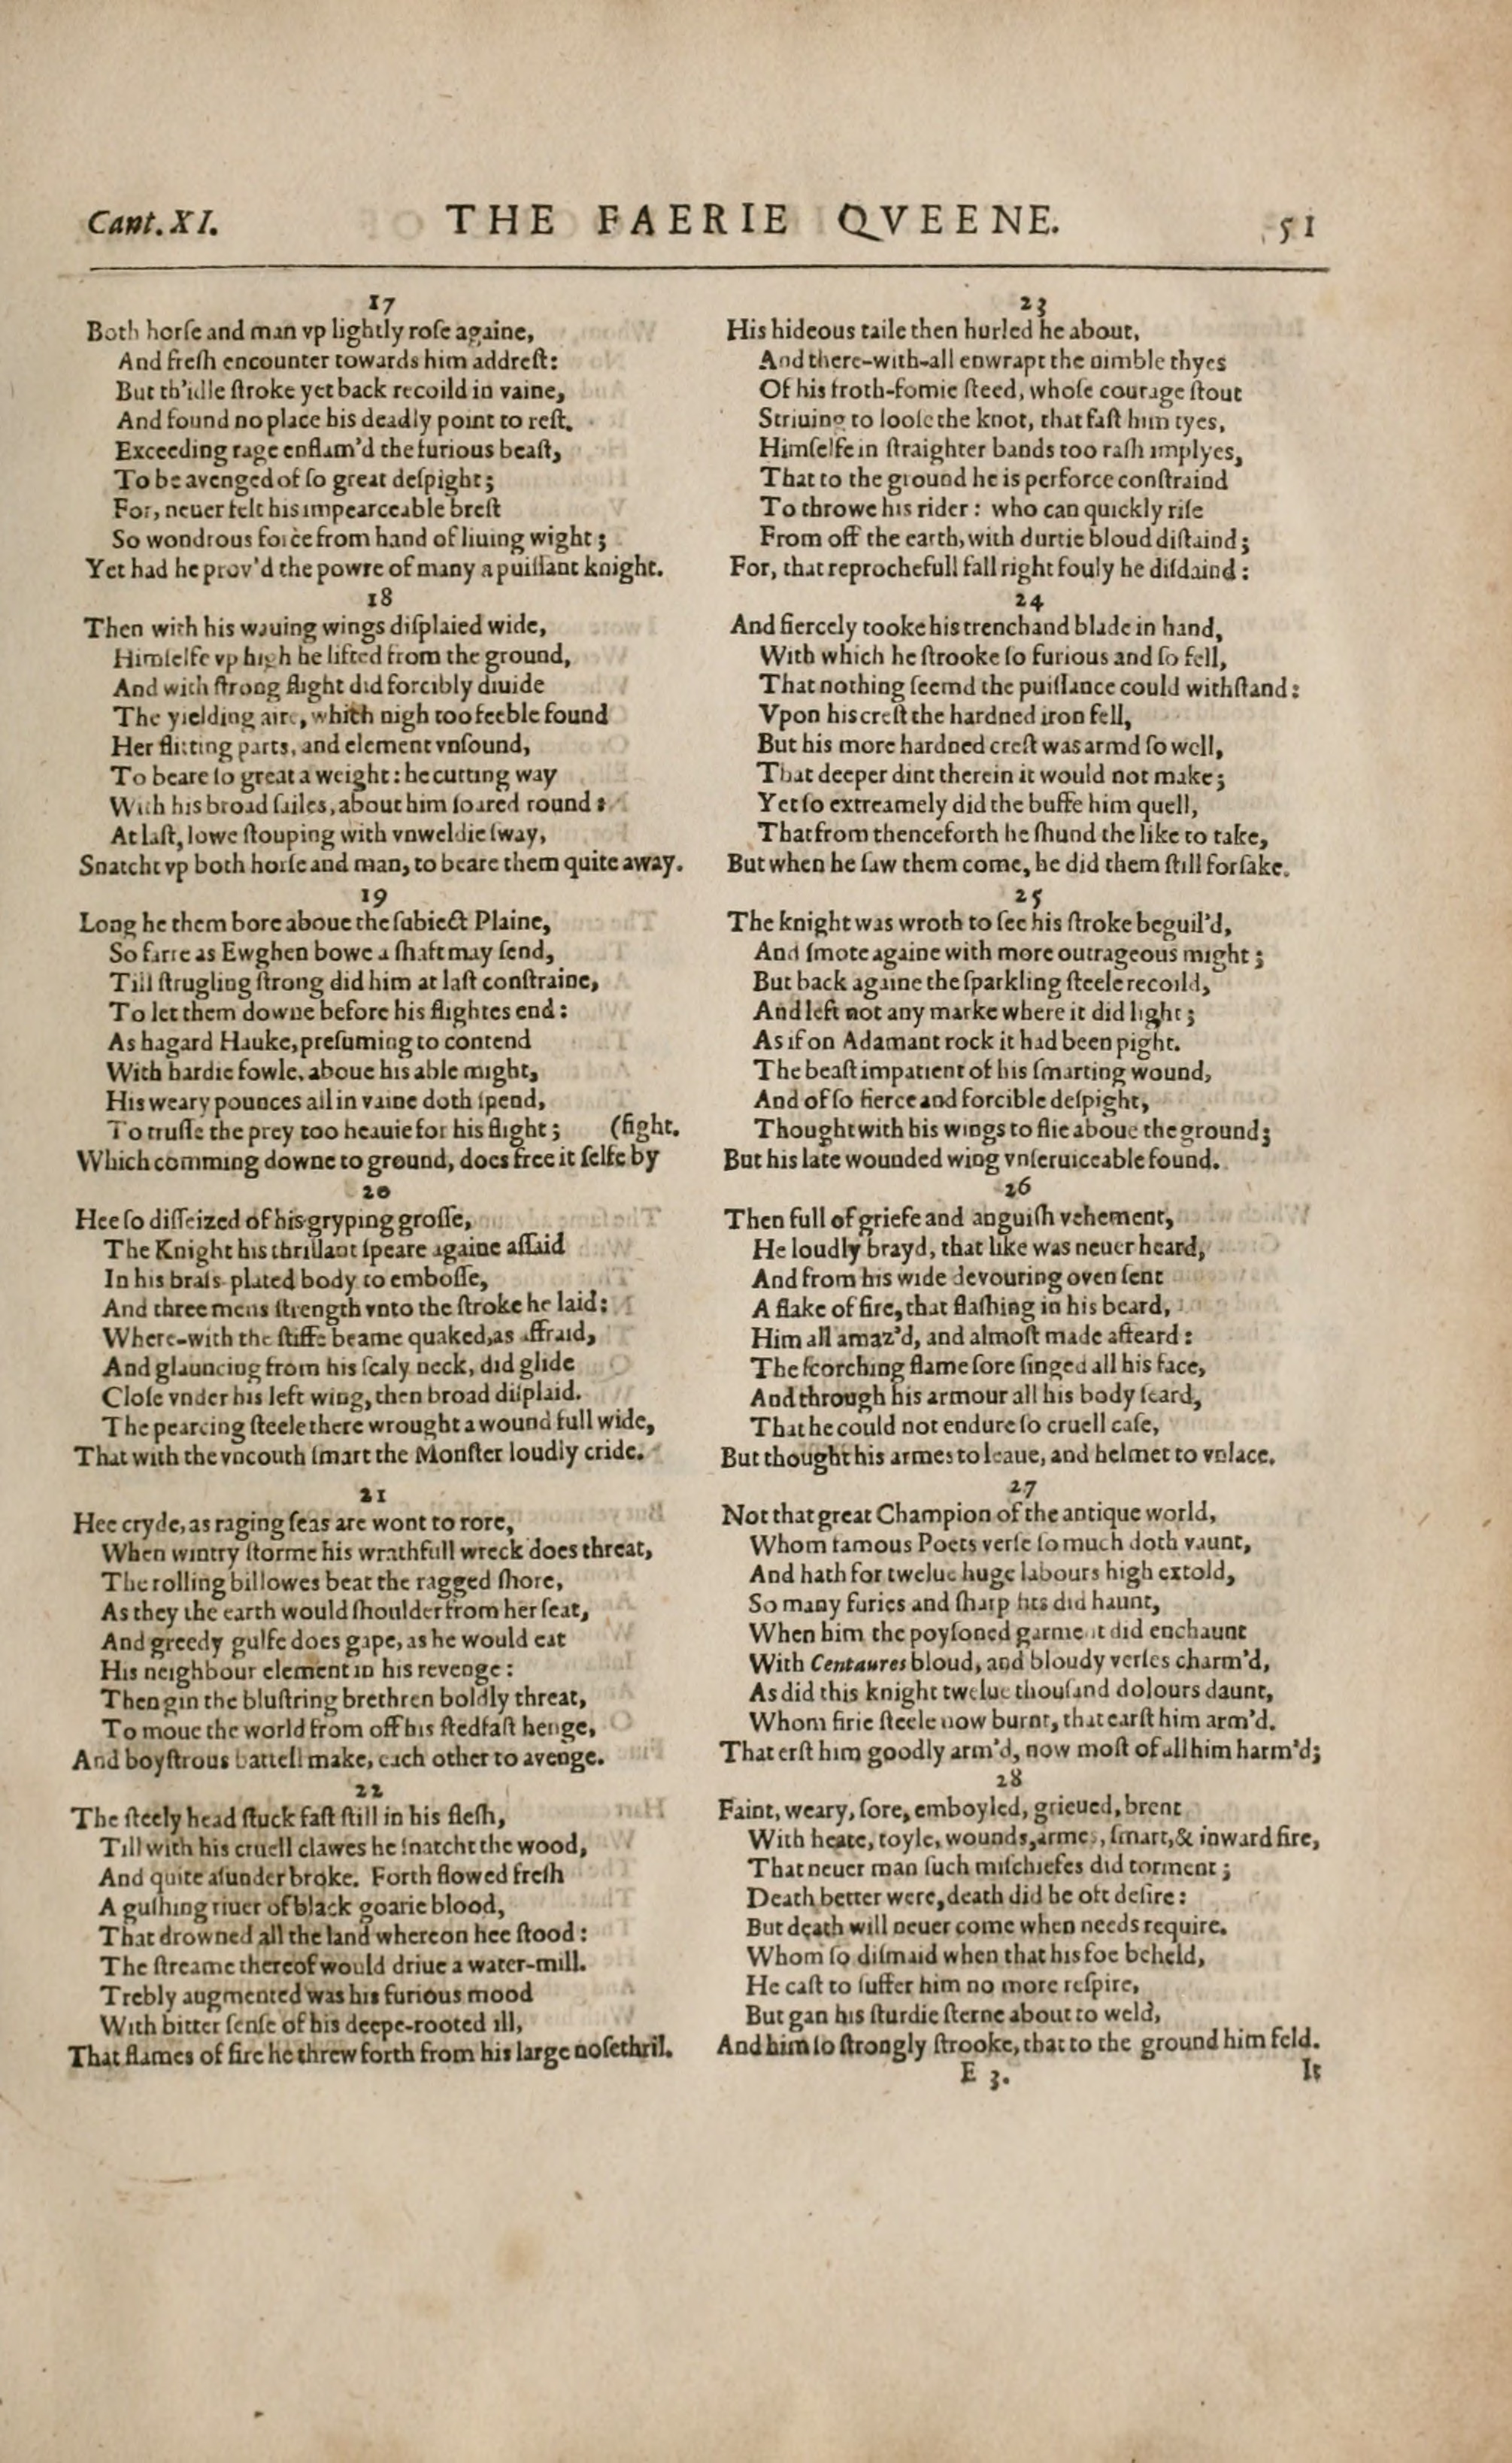 Cant. XI.
THE FAERIE QVEENE.
51
17
Both horſe and man vp lightly roſe againe,
And freſh encounter towards him addreſt:
But th'idle ſtroke yet back recoild in vaine,
And found no place his deadly point to reſt.
Exceeding rage enflam'd the furious beaſt,
To be avenged of ſo great deſpight;
For, neuer felt his impearceable breſt
So wondrous force from hand of liuing wight;
Yet had he prov'd the powre of many a puiſſant knight.
18
Then with his wauing wings diſplaied wide,
Himſelfe vp high he lifted from the ground,
And with ſtrong flight did forcibly diuide
The yielding aire, which nigh too feeble found
Her flitting parts, and element vnſound,
To beare ſo great a weight: he cutting way
With his broad ſailes, about him ſoared round:
At laſt, lowe ſtouping with vnweldie ſway,
Snatcht vp both horſe and man, to beare them quite away.
19
Long he them bore aboue the ſubiect Plaine,
So farre as Ewghen bowe a ſhaft may ſend,
Till ſtrugling ſtrong did him at laſt conſtraine,
To let them downe before his flightes end:
As hagard Hauke, preſuming to contend
With hardie fowle, aboue his able might,
His weary pounces all in vaine doth ſpend,
To truſſe the prey too heauie for his flight; (fight.
Which comming downe to ground, does free it ſelfe by
20
Hee ſo diſſeized of his gryping groſſe,
The Knight his thrillant ſpeare againe aſſaid
In his braſs-plated body to emboſſe,
And three mens ſtrength vnto the ſtroke he laid;
Where-with the ſtiffe beame quaked, as affraid,
And glauncing from his ſcaly neck, did glide
Cloſe vnder his left wing, then broad diſplaid.
The pearcing ſteele there wrought a wound full wide,
That with the vncouth ſmart the Monſter loudly cride.
21
Hee cryde, as raging ſeas are wont to rore,
When wintry ſtorme his wrathfull wreck does threat,
The rolling billowes beat the ragged ſhore,
As they the earth would ſhoulder from her ſeat,
And greedy gulfe does gape, as he would eat
His neighbour element in his revenge:
Then gin the bluſtring brethren boldly threat,
To moue the world from off his ſtedfaſt henge,
And boyſtrous battell make, each other to avenge.
22
The ſteely head ſtuck faſt ſtill in his fleſh,
Till with his cruell clawes he ſnatcht the wood,
And quite aſunder broke. Forth flowed freſh
A guſhing riuer of black goarie blood,
That drowned all the land whereon hee ſtood:
The ſtreame thereof would driue a water-mill.
Trebly augmented was his furious mood
With bitter ſenſe of his deepe-rooted ill,
That flames of fire he threw forth from his large noſethril.
23
His hideous taile then hurled he about,
And there-with-all enwrapt the nimble thyes
Of his froth-fomie ſteed, whoſe courage ſtout
Striuing to looſe the knot, that faſt him tyes,
Himſelfe in ſtraighter bands too raſh implyes,
That to the ground he is perforce conſtraind
To throwe his rider: who can quickly riſe
From off the earth, with durtie bloud diſtaind;
For, that reprochefull fall right fouly he diſdaind:
24
And fiercely tooke his trenchand blade in hand,
With which he ſtrooke ſo furious and ſo fell,
That nothing ſeemd the puiſſance could withſtand:
Vpon his creſt the hardned iron fell,
But his more hardned creſt was armd ſo well,
That deeper dint therein it would not make;
Yet ſo extreamely did the buffe him quell,
That from thenceforth he ſhund the like to take,
But when he ſaw them come, he did them ſtill forſake.
25
The knight was wroth to ſee his ſtroke beguil'd,
And ſmote againe with more outrageous might;
But back againe the ſparkling ſteele recoild,
And left not any marke where it did light;
As if on Adamant rock it had been pight.
The beaſt impatient of his ſmarting wound,
And of ſo fierce and forcible deſpight,
Thought with his wings to flie aboue the ground;
But his late wounded wing vnſeruiceable found.
26
Then full of griefe and anguiſh vehement,
He loudly brayd, that like was neuer heard,
And from his wide devouring oven ſent
A flake of fire, that flaſhing in his beard,
Him all amaz'd, and almoſt made afeard:
The ſcorching flame ſore ſinged all his face,
And through his armour all his body ſeard,
That he could not endure ſo cruell caſe,
But thought his armes to leaue, and helmet to vnlace.
27
Not that great Champion of the antique world,
Whom famous Poets verſe ſo much doth vaunt,
And hath for twelue huge labours high extold,
So many furies and ſharp fits did haunt,
When him the poyſoned garment did enchaunt
With Centaures bloud, and bloudy verſes charm'd,
As did this knight twelue thouſand dolours daunt,
Whom firie ſteele now burnt, that earſt him arm'd.
That erſt him goodly arm'd, now moſt of all him harm'd;
28
Faint, weary, ſore, emboyled, grieued, brent
With heate, toyle, wounds, armes, ſmart, & inward fire,
That neuer man ſuch miſchiefes did torment;
Death better were, death did he oft deſire:
But death will neuer come when needs require.
Whom ſo diſmaid when that his foe beheld,
He caſt to ſuffer him no more reſpire,
But gan his ſturdie ſterne about to weld,
And him ſo ſtrongly ſtrooke, that to the ground him feld.
E 3.
It